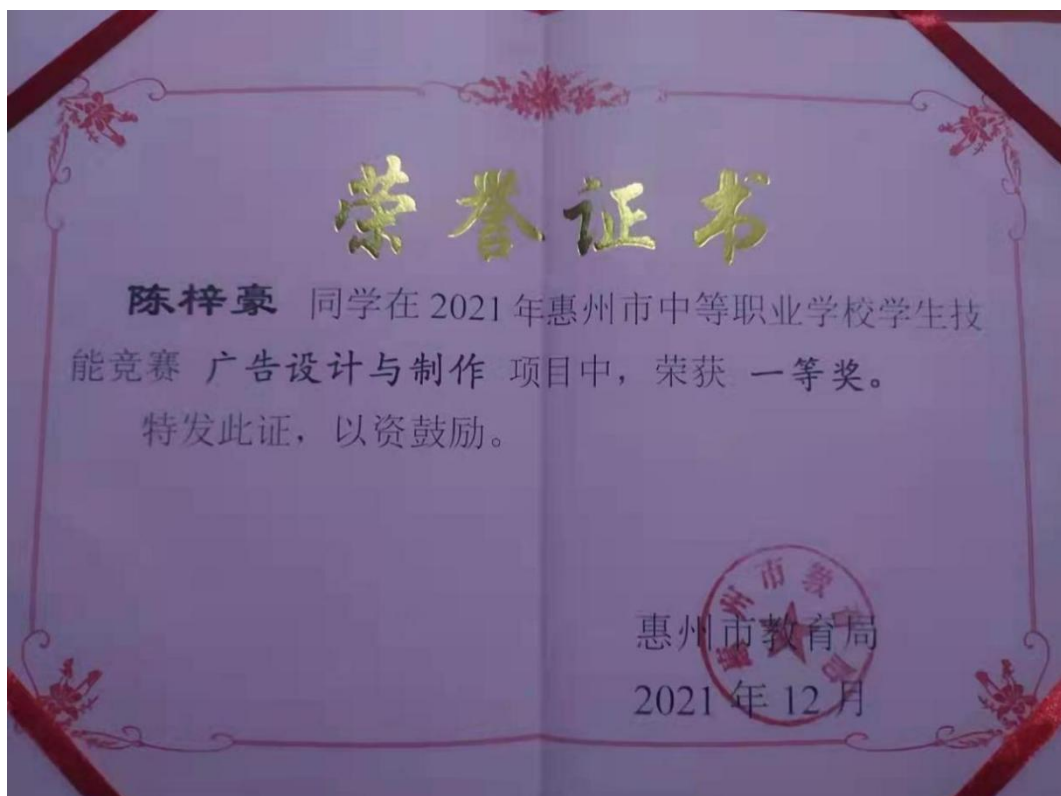 荣誉证书
陈梓豪 同学在 2021 年惠州市中等职业学校学生技
能竞赛 广告设计与制作 项目中，荣获 一等奖。
特发此证，以资鼓励。
惠州市教育局
惠州市教育局
2021 年 12 月